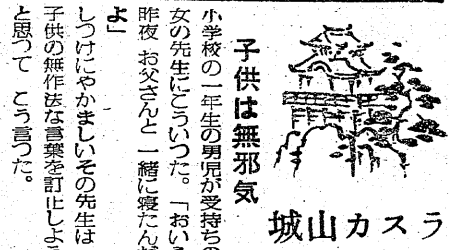 ラスカ山城
子供は無邪気
小学校の一年生の男児が受持ちの
女の先生にこういつた。「おいら
昨夜 お父さんと 一緒に寝たんだ
よ」
しつけにやかましいその先生は
子供の無作法な言葉を訂正しよう
と思つて こう言つた。